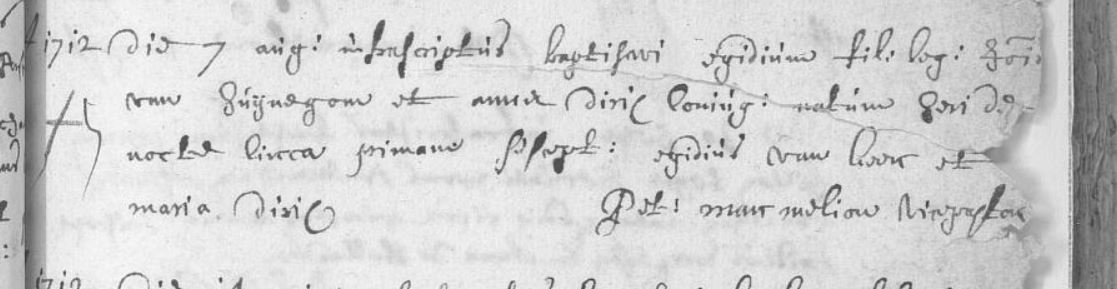 1712 Die 7 aug: infrascriptus baptisavi egidium fil: leg: Joïs
van Huÿnegom et anna dirix conjug: natum heri de
nocte circa primam suscept: egidius van hove et
maria dirix Pet: van
1712 Die